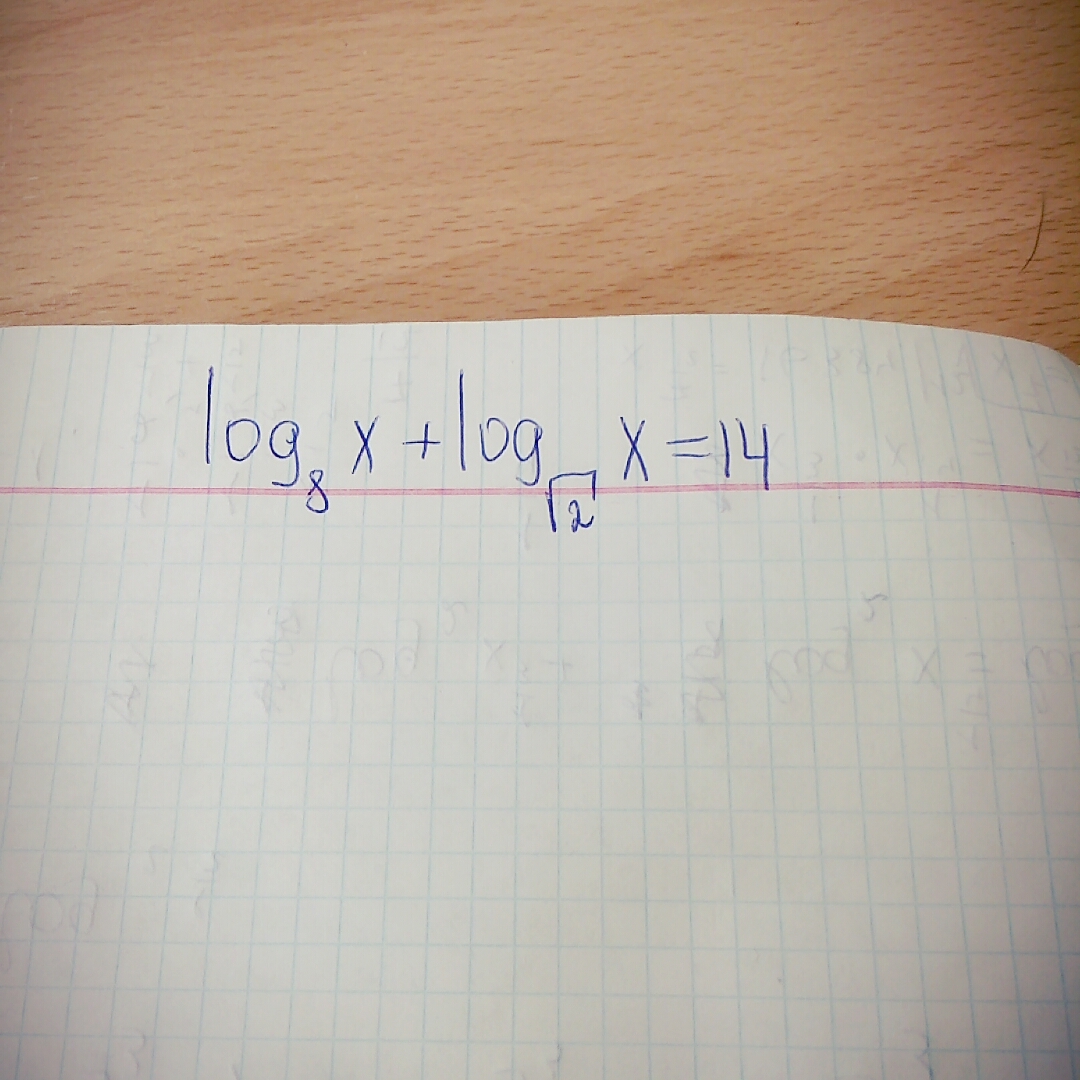 log₈ x + log_√2 x = 14